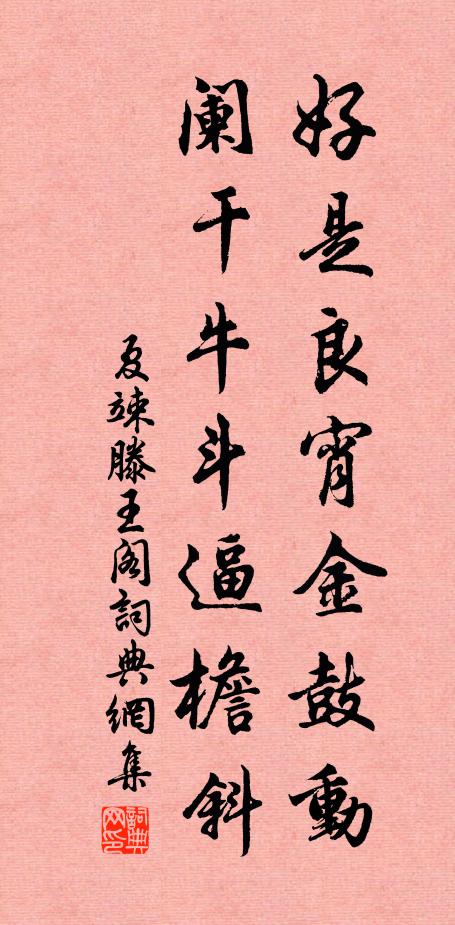 好是良宵金鼓動
阑干牛斗逼檐斜
夏竦滕王阁詞典網集
詞典网印